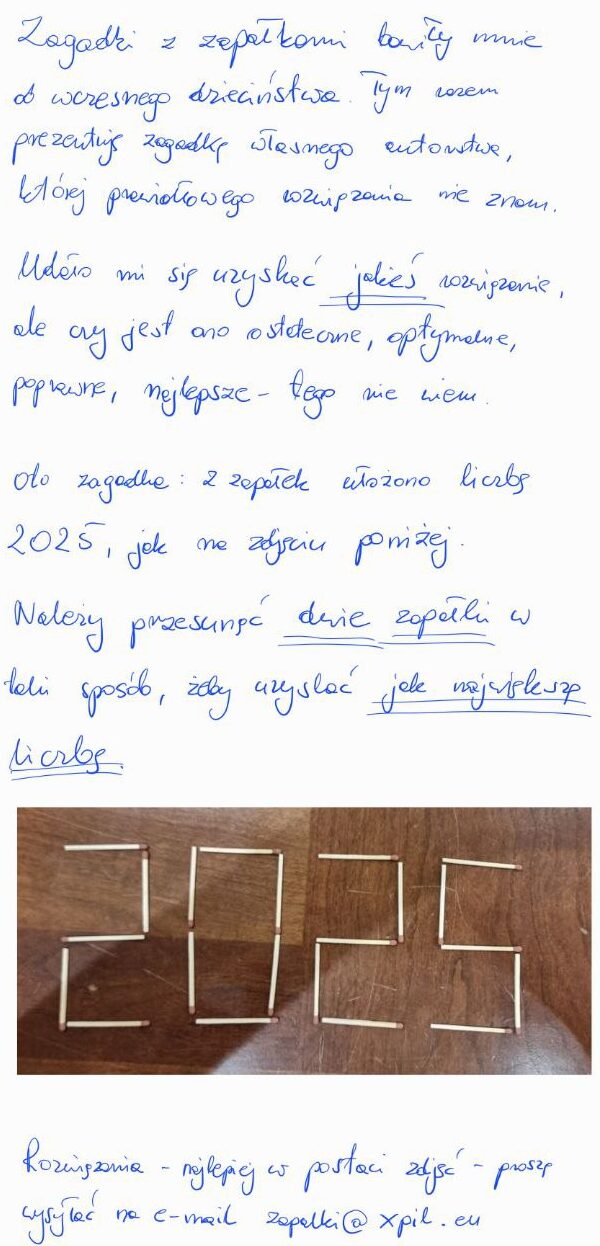 Zagadki z zapałkami bawiły mnie
od wczesnego dzieciństwa. Tym razem
prezentuję zagadkę własnego autorstwa,
której prawidłowego rozwiązania nie znam.
Udało mi się uzyskać jakieś rozwiązanie,
ale czy jest ono ostateczne, optymalne,
poprawne, najlepsze - tego nie wiem.
Oto zagadka: z zapałek ułożono liczbę
2025, jak na zdjęciu poniżej.
Należy przesunąć dwie zapałki w
taki sposób, żeby uzyskać jak największą
liczbę.
2025
Rozwiązania - najlepiej w postaci zdjęć - proszę
wysyłać na e-mail zapalki@xpil.eu